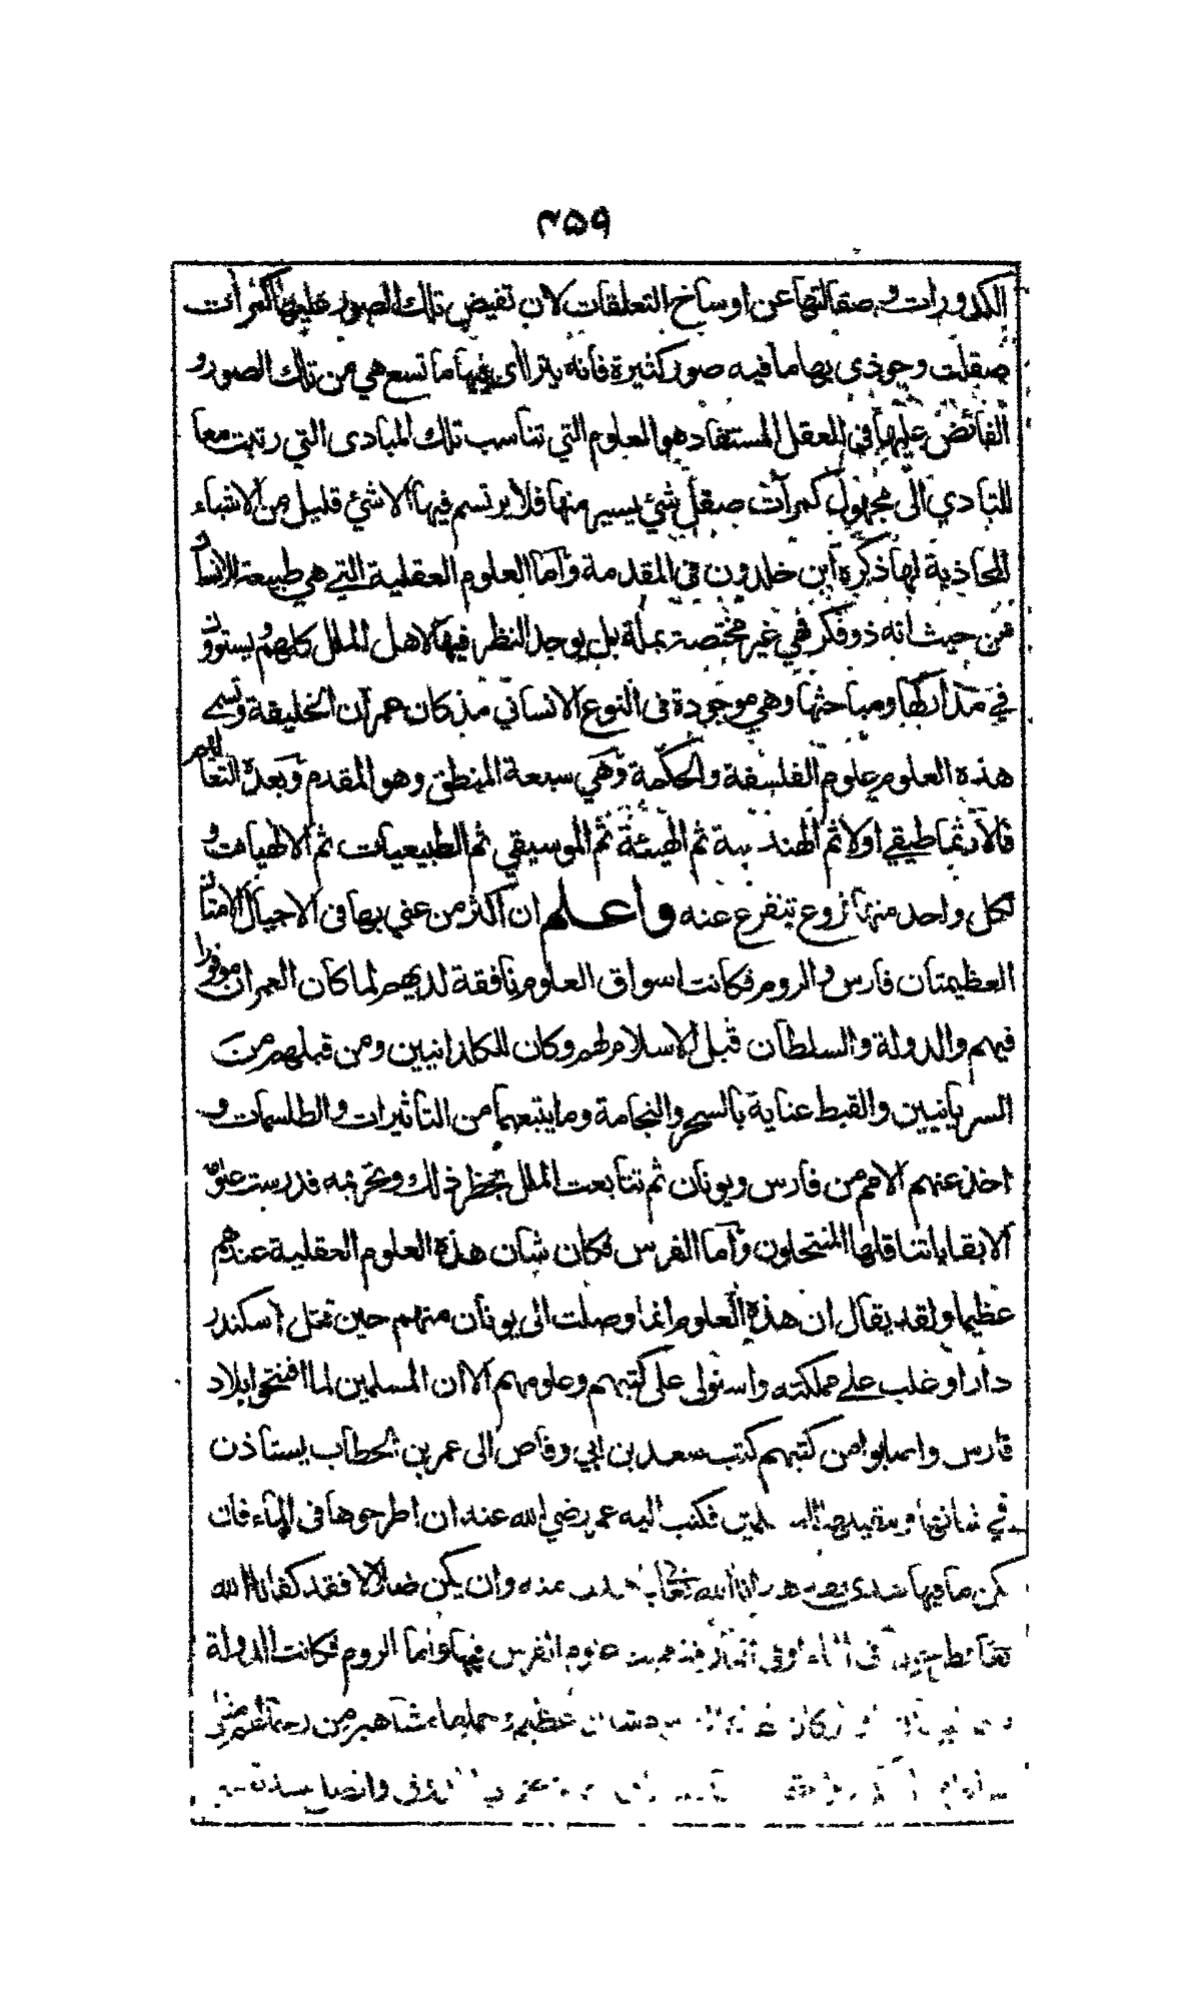 ۳۵۹
الكدورات وصقالتها عن اوساخ التعلقات لان تفيض تلك الصور عليها كمرأت
صقلت وحوذى بها ما فيه صور كثيرة فانه يتراأى فيها ما تسع هي من تلك الصور و
الفائض عليها في العقل المستفاد هو العلوم التي تناسب تلك المبادى التي رتبت معا
للتادي الى مجهول كمرآت صقل شئ يسير منها فلا يرتسم فيها الا شئ قليل من الاشياء
المحاذية لها ذكره ابن خلدون في المقدمة واما العلوم العقلية التي هي طبيعة للانسان
من حيث انه ذو فكر فهي غير مختصة بملة بل يوجد النظر فيها لاهل الملل كلهم ويستوون
في مداركها ومباحثها وهي موجودة في النوع الانساني مذ كان عمران الخليقة وتسمى
هذه العلوم علوم الفلسفة والحكمة وهي سبعة المنطق وهو المقدم وبعده التعاليم
فالارثماطيقي اولا ثم الهندسة ثم الهيئة ثم الموسيقي ثم الطبيعيات ثم الالهيات و
لكل واحد منها فروع تتفرع عنه واعلم ان اكثر من عني بها في الاجيال الامتان
العظيمتان فارس والروم فكانت اسواق العلوم نافقة لديهم لما كان العمران موفورا
فيهم والدولة والسلطان قبل الاسلام لهم وكان للكلدانيين ومن قبلهم من
السريانيين والقبط عناية بالسحر والنجامة وما يتبعهما من التاثيرات والطلسمات و
اخذ عنهم الامم من فارس ويونان ثم تتابعت الملل بحظر ذلك وتحريمه فدرست علومه
الا بقايا تناقلها المنتحلون واما الفرس فكان شان هذه العلوم العقلية عندهم
عظيما ولقد يقال ان هذه العلوم انما وصلت الى يونان منهم حين قتل اسكندر
دارا وغلب على مملكته واستولى على كتبهم وعلومهم الا ان المسلمين لما افتتحوا بلاد
فارس واصابوا من كتبهم كتب سعد بن ابي وقاص الى عمر بن الخطاب يستاذن
في شانها وتنقيلها للمسلمين فكتب اليه عمر رضي الله عنه ان اطرحوها في الماء فان
يكن ما فيها هدى فقد هدانا الله تعالى باهدى منه وان يكن ضلالا فقد كفانا الله
تعالى فطرحوها في الماء او في النار فذهبت علوم الفرس فيها واما الروم فكانت الدولة
عظيم وحملها مشاهير من رجالهم مثل